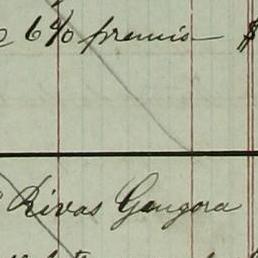 6% premio $
Rivas Gongora